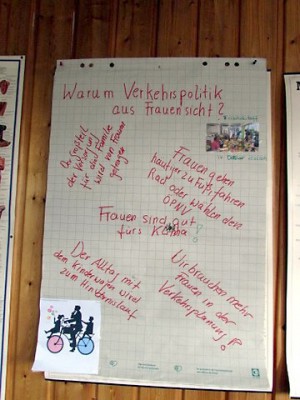 Warum Verkehrspolitik
aus Frauensicht?
Der Großteil
der Versorgung
für die Familie
wird von Frauen
getragen
Frauen gehen
häufiger zu Fuß, fahren
Rad oder wählen den
ÖPNV
Frauen sind gut
fürs Klima!
Der Alltag mit
dem Kinderwagen wird
zum Hindernislauf
Wir brauchen mehr
Frauen in der
Verkehrsplanung!